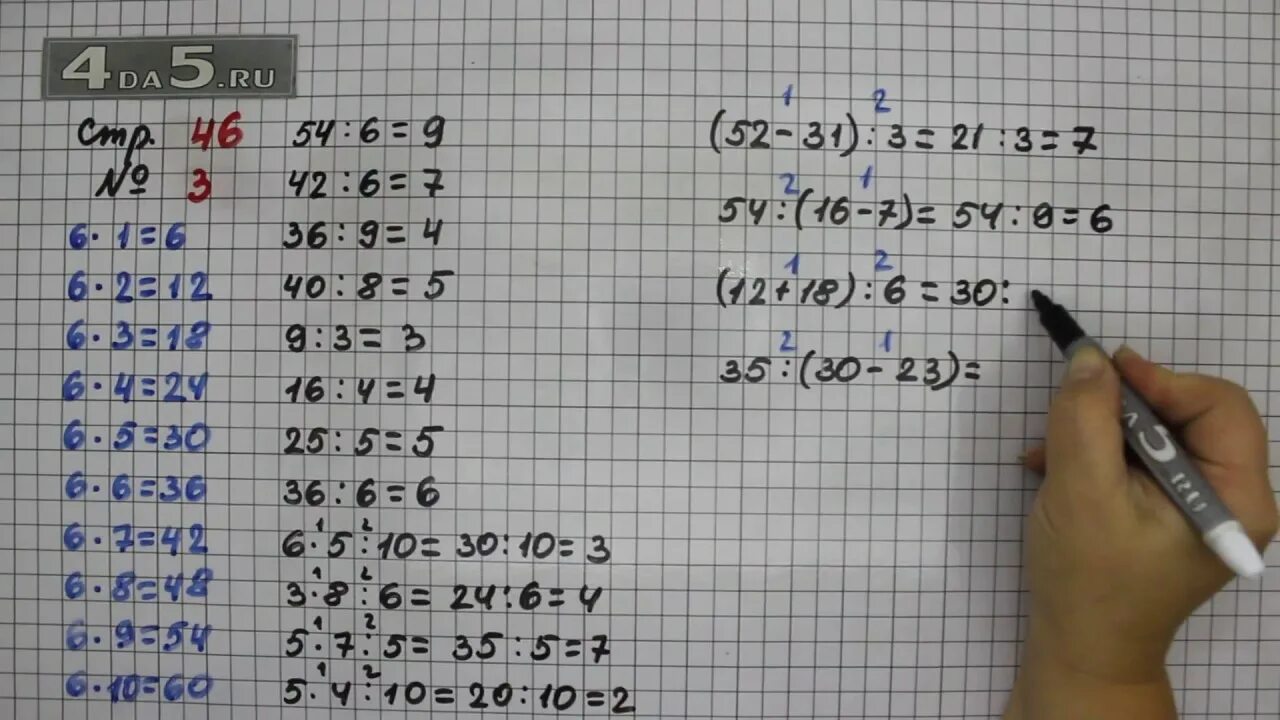 4DA5.RU
Стр. 46
№ 3
6·1=6
6·2=12
6·3=18
6·4=24
6·5=30
6·6=36
6·7=42
6·8=48
6·9=54
6·10=60
54:6=9
42:6=7
36:9=4
40:8=5
9:3=3
16:4=4
25:5=5
36:6=6
1 2
6·5:10=30:10=3
1 2
3·8:6=24:6=4
1 2
5·7:5=35:5=7
1 2
5·4:10=20:10=2
1 2
(52-31):3=21:3=7
2 1
54:(16-7)=54:9=6
1 2
(12+18):6=30:
2 1
35:(30-23)=